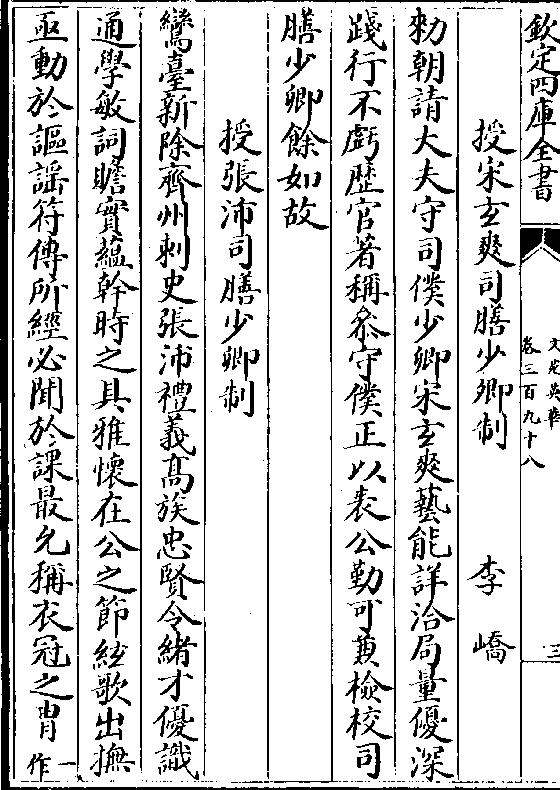 欽定四庫全書
文苑英華
卷三百九十八
三
授宋玄爽司膳少卿制 李嶠
勑朝請大夫守司僕少卿宋玄爽藝能詳洽局量優深
踐行不虧歴官著稱叅守僕正以表公勤可兼檢校司
膳少卿餘如故
授張沛司膳少卿制
鸞臺新除齊州刺史張沛禮義髙族忠賢令緒才優識
通學敏詞贍實蘊幹時之具雅懷在公之節絃歌出撫
亟動於謳謡符傳所經必聞於課最允稱衣冠之胄一作